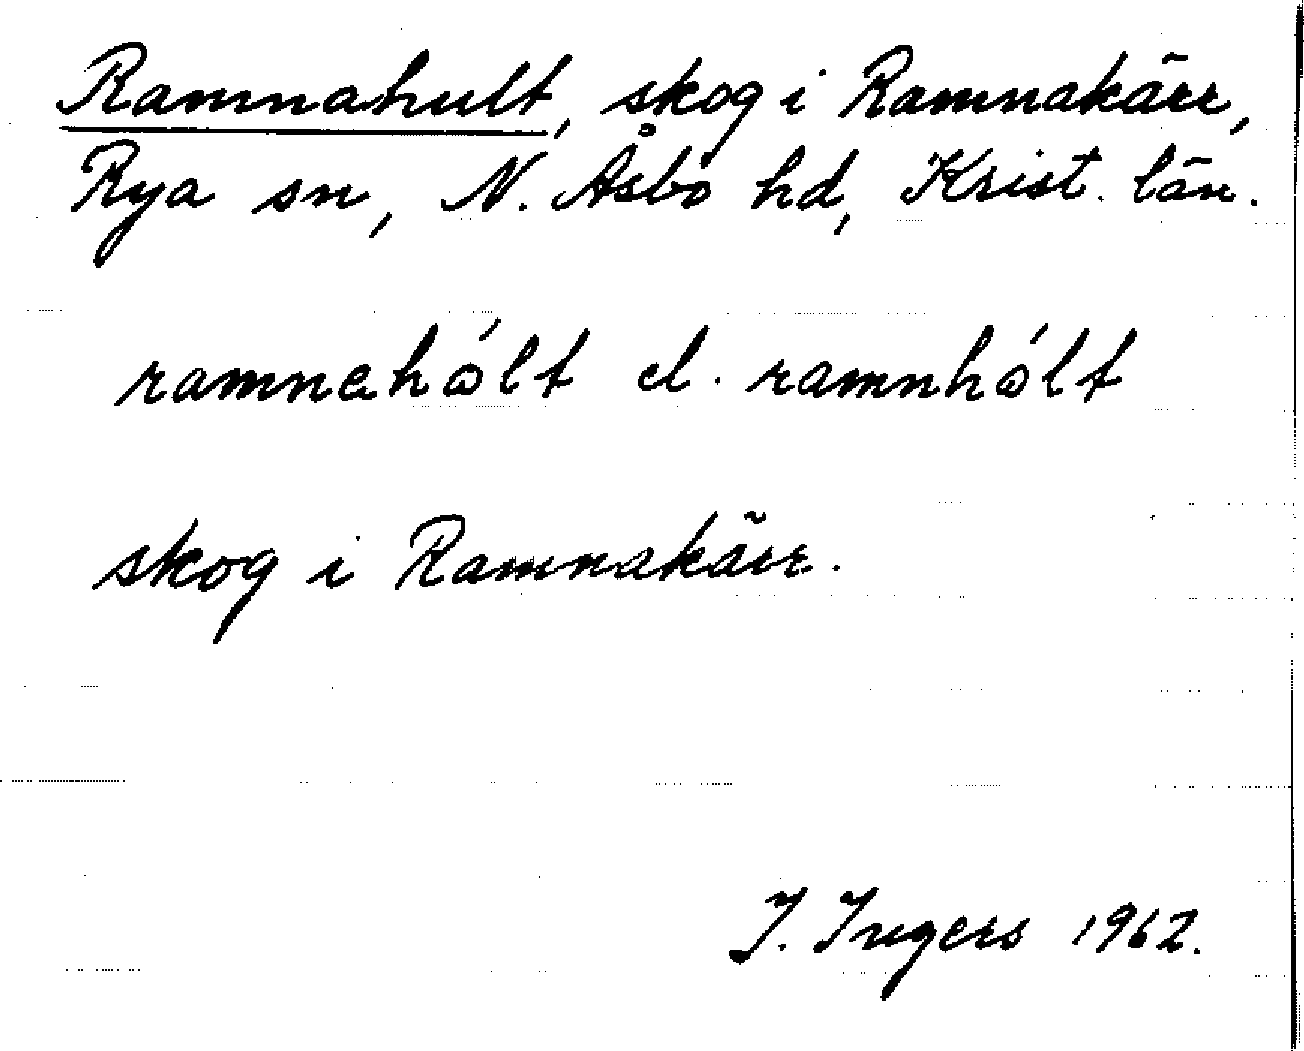 Ramnahult, skog i Ramnakärr,
Rya sn, N. Åsbo hd, Krist. län.
ramnahólt el. ramnhólt
skog i Ramnakärr.
I. Ingers 1962.